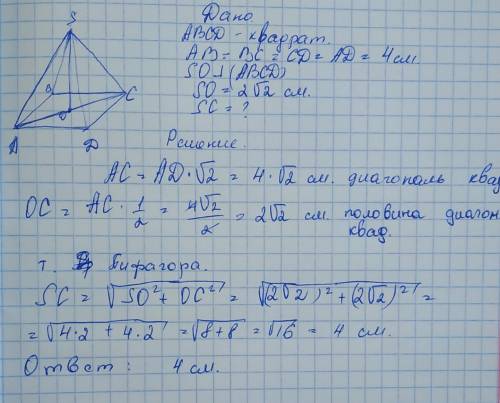 S
B
C
O
A
D
Дано
ABCD - квадрат.
AB = BC = CD = AD = 4 см.
SO ⊥ (ABCD)
SO = 2√2 см.
SC = ?
Решение.
AC = AD · √2 = 4 · √2 см. диагональ квад
OC = AC · 1/2 = 4√2/2 = 2√2 см. половина диагон
квад.
т. Пифагора.
SC = √SO² + OC² = √(2√2)² + (2√2)² =
= √4·2 + 4·2 = √8+8 = √16 = 4 см.
Ответ: 4 см.